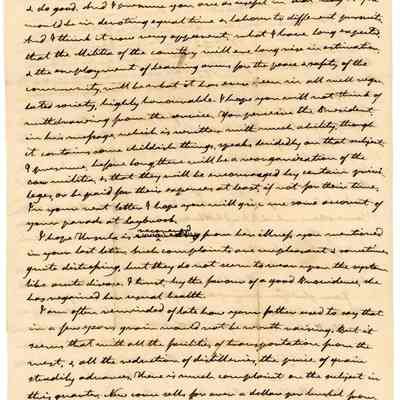 & do good. And I presume you are as useful in that way as you
would be in devoting equal time & labour to different pursuits
And I think it now very apparent, what I have long expected,
that the Militia of the country will ere long rise in estimation,
& the employment of bearing arms for the peace & safety of the
community, will be what it has ever been in all well regu-
lated society, highly honourable. I hope you will not think of
withdrawing from the service. You perceive the President,
in his message, which is written with much ability, though
it contains some childish things, speaks decidedly on that subject.
I presume, before long there will be a reorganization of the
corps militia, & that they will be encouraged by certain privi-
leges, or be paid for their expenses at least, if not for their time.
In your next letter I hope you will give me some account of
your parade at
I hope Ursula is recovered from her illness you mentioned
in your last letter. Such complaints are unpleasant & sometimes
quite distressing, but they do not seem to wear upon the system
like acute disease. I trust, by the favour of a good Providence, she
has regained her usual health.
I am often reminded of late how your father used to say that
in a few years grain would not be worth raising. But it
seems that with all the facilities of transportation from the
west, & all the reduction of distilleries, the price of grain
steadily advances. There is much complaint on the subject in
this quarter. New corn sells for over a dollar per bushel from